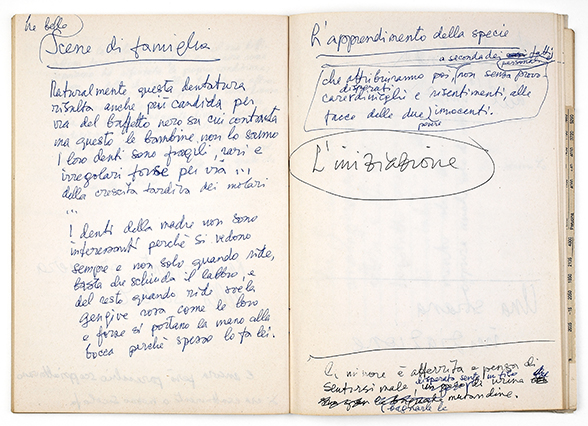 tre belle
Scene di famiglia
Naturalmente questa dentatura
risulta anche più candida per
via del baffetto nero su cui contrasta
ma questo le bambine non lo sanno
I loro denti sono fragili, rari e
irregolari forse per via
della crescita tardiva dei molari
...
I denti della madre non sono
interessanti perché si vedono
sempre e non solo quando ride,
basta che schiuda il labbro, e
del resto quando ride svela
gengive rosa come le loro
e forse si portano la mano alla
bocca perché spesso lo fa lei.
L'apprendimento della specie
a seconda dei fatti
personali
che attribuiranno poi, non senza provo-
disperati
care dinieghi e risentimenti, alle
facce delle due innocenti.
povere
L'iniziazione
La minore è atterrita e pensa di
sentirsi male
urina
bagnarle le
mutandine.